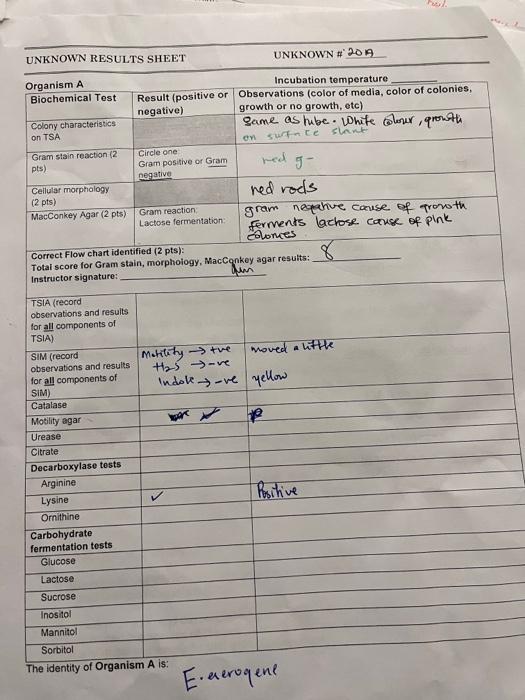 UNKNOWN RESULTS SHEET UNKNOWN # 20A
Organism A Incubation temperature
Biochemical Test Result (positive or negative) Observations (color of media, color of colonies, growth or no growth, etc)
Colony characteristics on TSA Same as tube. White colour, growth on surface slant
Gram stain reaction (2 pts) Circle one: Gram positive or Gram negative red g-
Cellular morphology (2 pts) red rods
MacConkey Agar (2 pts) Gram reaction: Lactose fermentation: gram negative cause of growth ferments lactose cause of pink colonies
Correct Flow chart identified (2 pts):
Total score for Gram stain, morphology, MacConkey agar results: 8
Instructor signature:
TSIA (record observations and results for all components of TSIA)
SIM (record observations and results for all components of SIM) Motility → +ve moved a little
H2S → -ve
Indole → -ve yellow
Catalase
Motility agar
Urease
Citrate
Decarboxylase tests
Arginine
Lysine ✓ Positive
Ornithine
Carbohydrate fermentation tests
Glucose
Lactose
Sucrose
Inositol
Mannitol
Sorbitol
The identity of Organism A is: E. aerogene